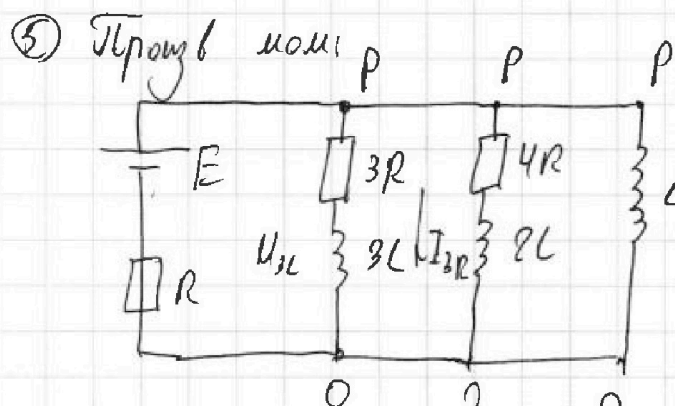 ⑤ Произв мом:
P P P
E 3R 4R L
R U₃L 3L I₃R 2L
0 0 0